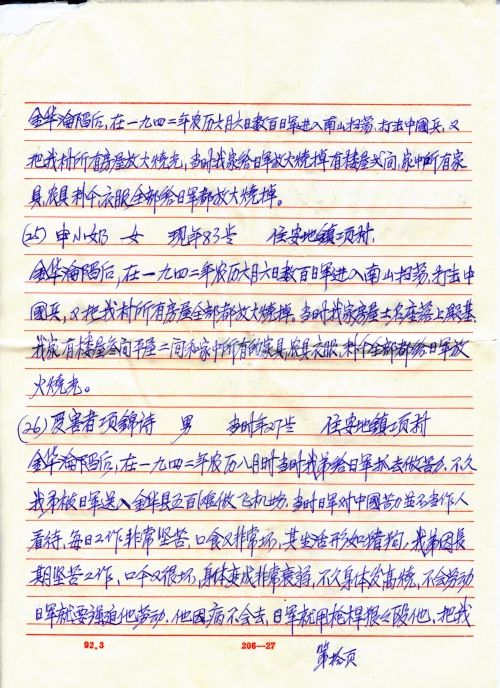 金华沦陷后，在一九四二年农历六月六日数百日军进入南山扫荡，打击中國兵，又
把我村所有房屋放火烧光，当时我家给日军放火烧掉有楼屋弍间，家中所有家
具，农具，衣服，全部给日军都放火烧掉。
(25) 申小奶 女 现年83岁 住安地镇项村，
金华沦陷后，在一九四二年农历六月六日数百日军进入南山扫荡，打击中
國兵，又把我村所有房屋全部都放火烧掉，当时我家房屋土名座落上殿基
我家有楼屋叁间平屋二间和家中所有的家具，农具，衣服，全部都给日军放
火烧光。
(26) 受害者项錦诗 男 当时年27岁 住安地镇项村
金华沦陷后，在一九四二年农历八月时当时我弟给日军抓去做苦力，不久
我弟被日军送入金华县五百滩做飞机场，当时日军对中國苦力並不当作人
看待，每日工作非常坚苦，口食又非常坏，其生活形如猪狗，我弟因長
期坚苦工作，口食又很坏，身体变成非常衰弱，不久身体发高烧，不会劳动
日军就要强迫他劳动，他因病不会去，日军就用枪桿狠々殴他，把我
92.3 206—27
第拾页